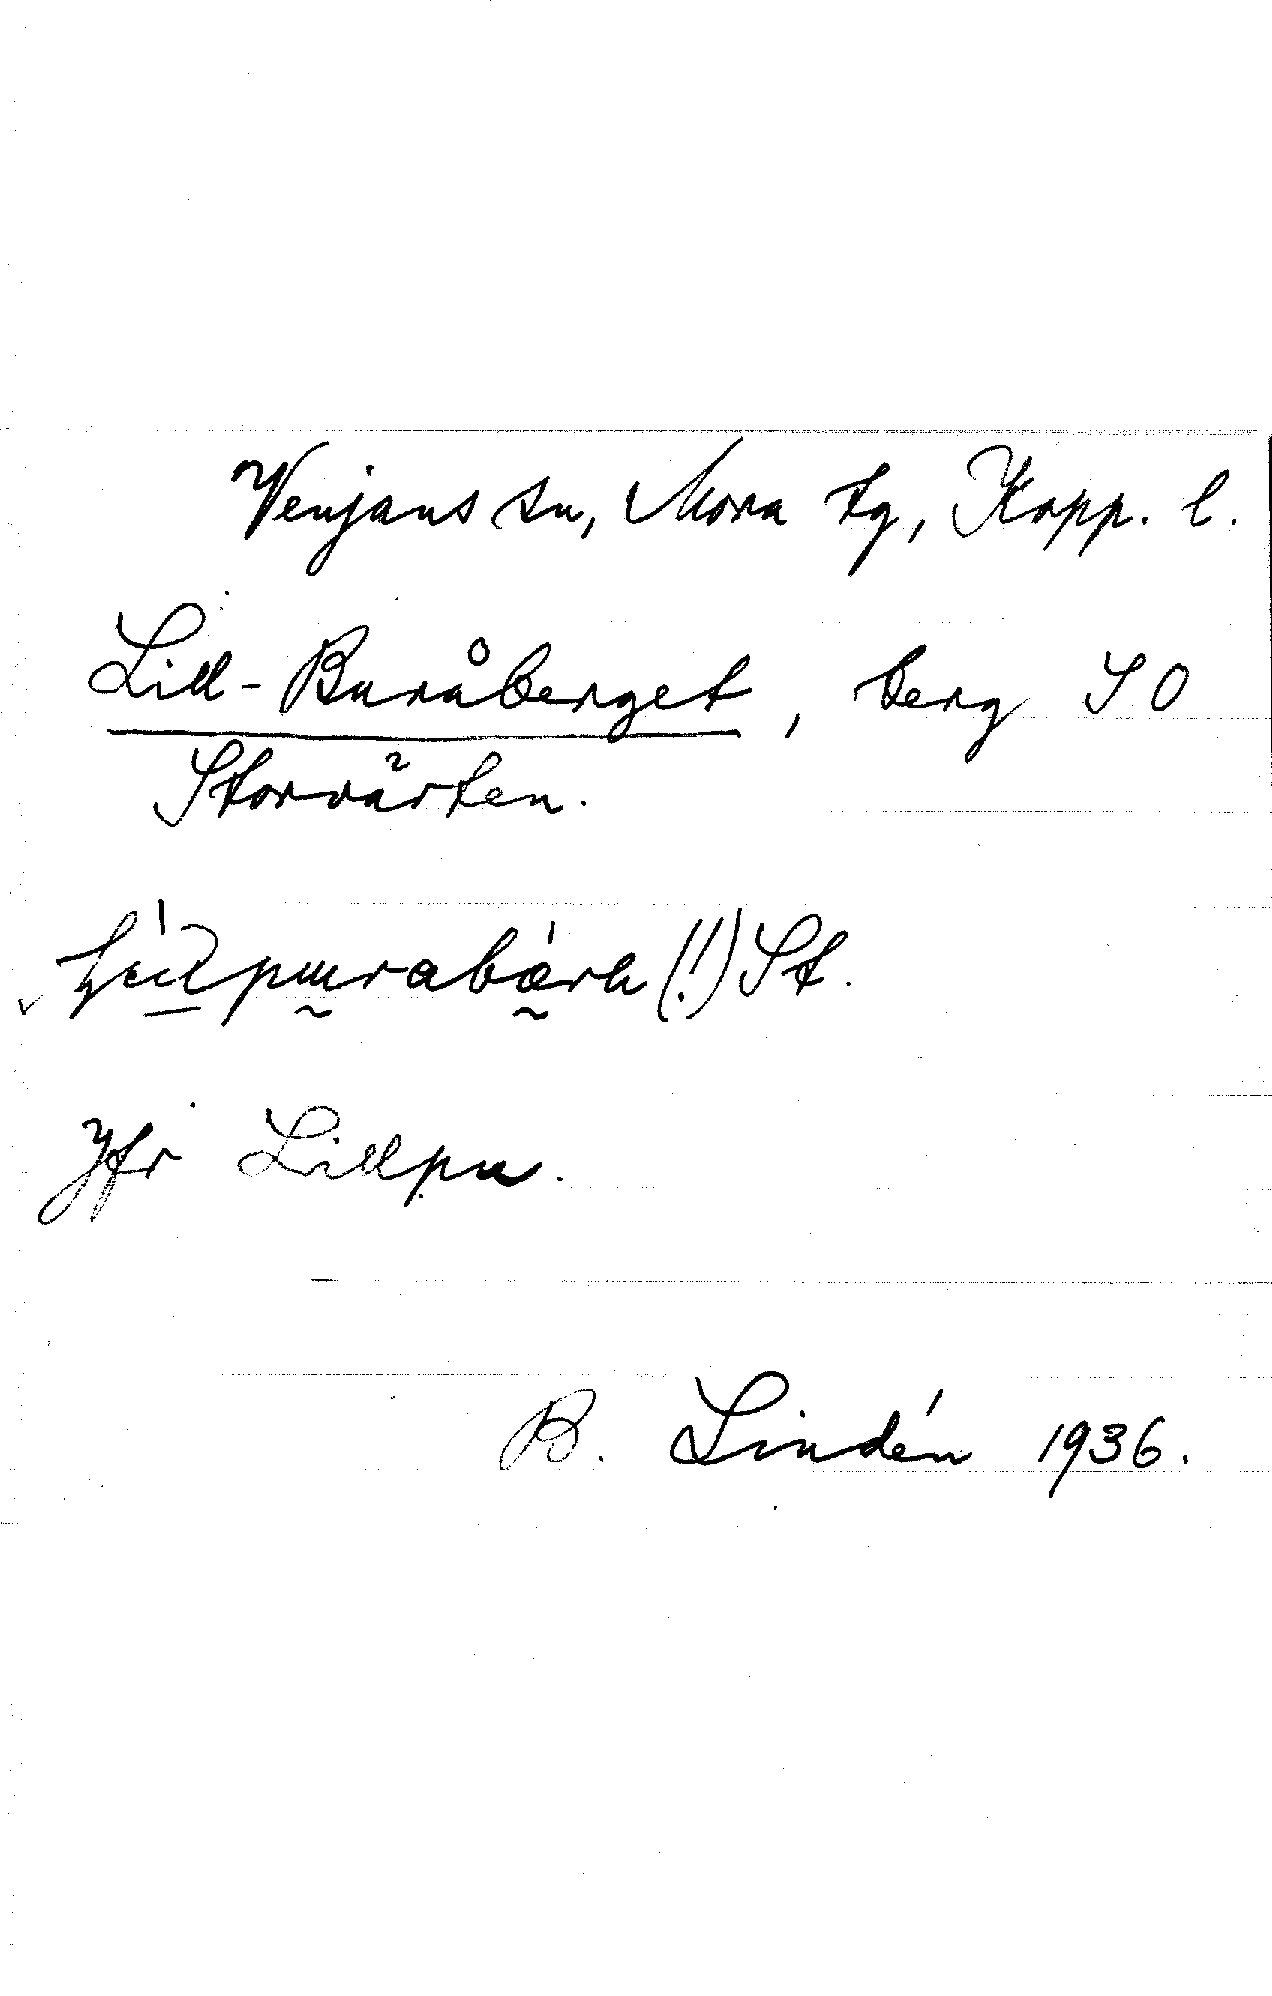 Venjans sn, Mora tg, Kopp. l.
Lill-Buråberget, berg SO
Storvärten.
(!) St.
Jfr Lillpu.
B. Lindén 1936.